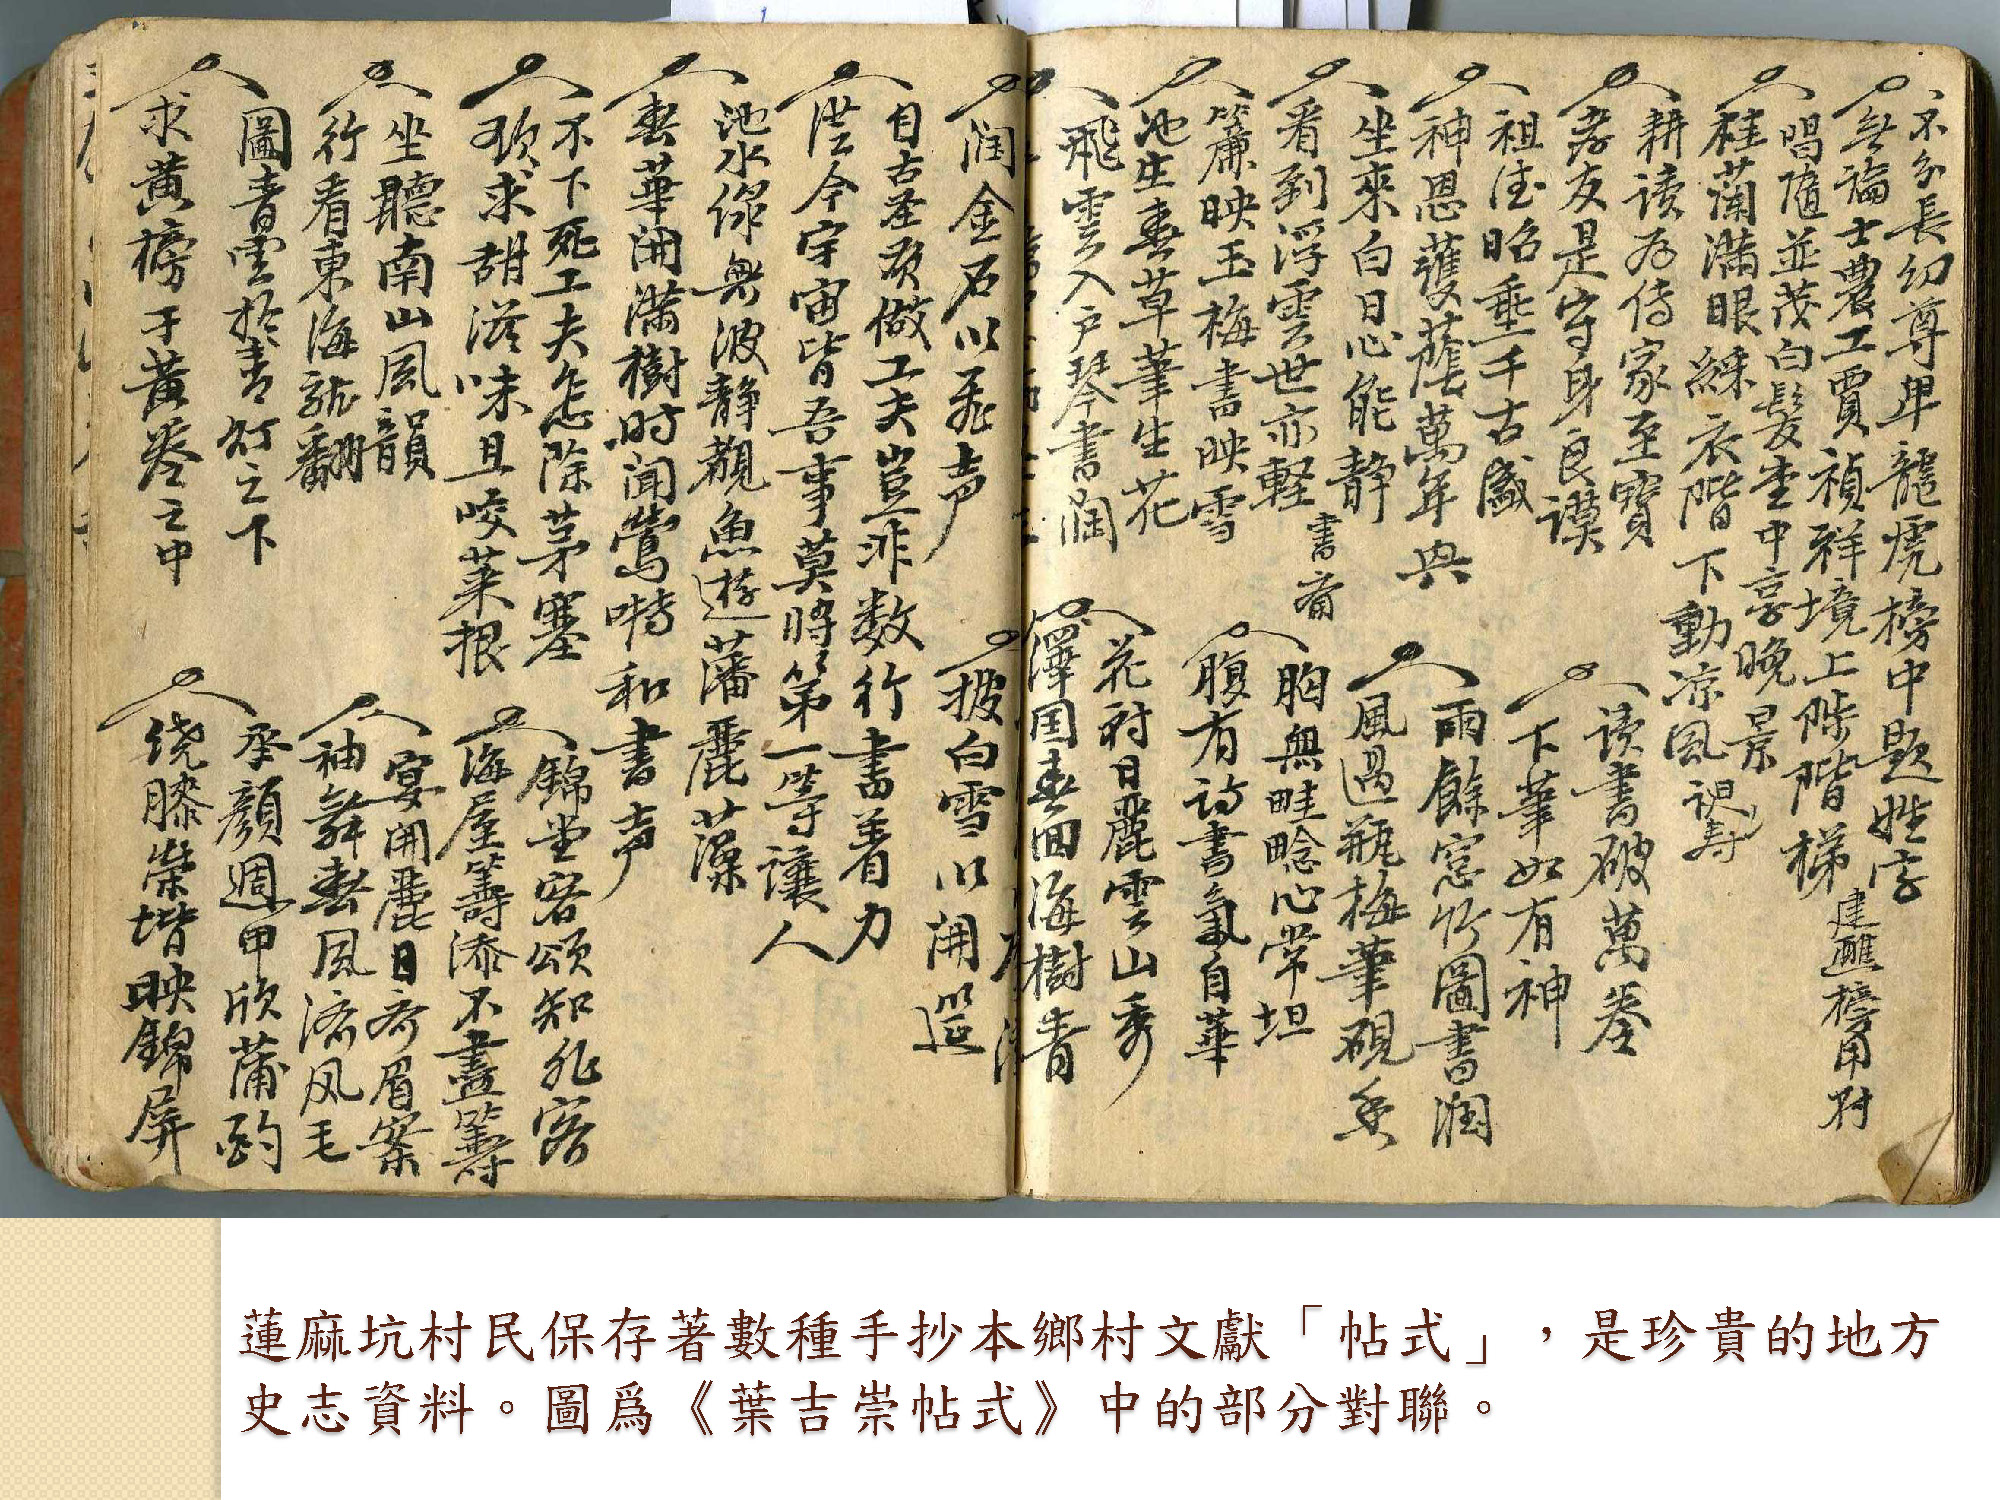 不分長幼尊卑龍虎榜中題姓字
無論士農工賈禎祥境上陞階梯
建醮榜用對
唱隨並茂白髮堂中享晚景
桂蘭滿眼綵衣階下動涼風
祝壽
耕读为传家至寶
孝友是守身良謨
读書破萬卷
下筆如有神
祖德昭垂千古盛
神恩護蔭萬年興
雨餘窓竹圖書润
風過瓶梅筆硯香
坐來白日心能靜
看到浮雲世亦軽
書齋
胸無畦畛心常坦
腹有詩書氣自華
簾映玉梅書映雪
池生春草筆生花
花衬日麗雲山秀
澤国春回海樹青
飛雲入户琴書润
润金石以飛声
披白雪以開筵
自古圣贤做工夫豈非数行書着力
洪今宇宙皆吾事莫將第一等讓人
池水绿無波静觀魚遊藩麗藻
春華開滿樹時闻鶯啭和書声
不下死工夫怎除茅塞
欲求胡滋味且咬菜根
錦堂客頌知非客
海屋籌添不盡籌
坐聽南山風韻
行看東海龍翻
宴開麗日齐眉案
袖舞春風济风毛
圖青雲於青灯之下
求黄榜于黄卷之中
承顏週甲欣蒲酌
绕膝崇堦映錦屏
蓮麻坑村民保存著數種手抄本鄉村文獻「帖式」，是珍貴的地方
史志資料。圖爲《葉吉崇帖式》中的部分對聯。